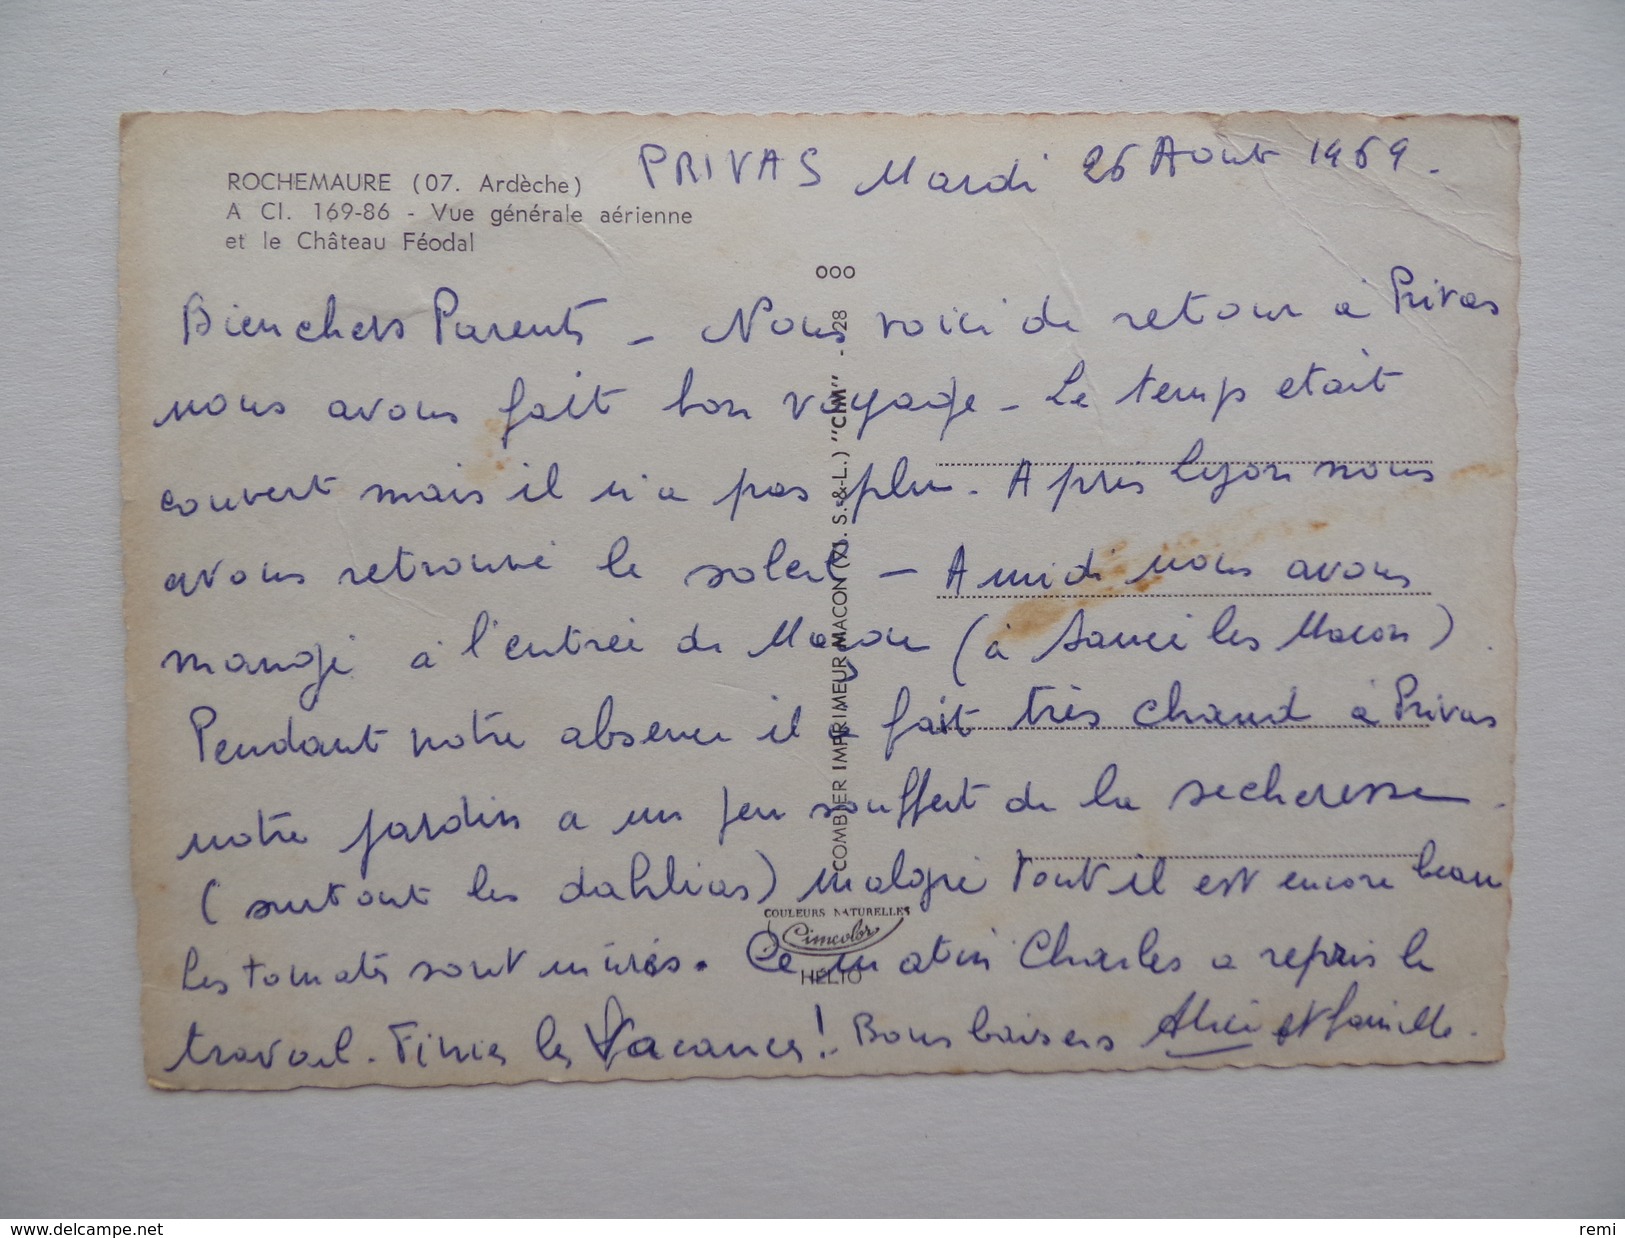 PRIVAS Mardi 26 Aout 1969.
ROCHEMAURE (07. Ardèche)
A Cl. 169-86 - Vue générale aérienne
et le Château Féodal
ooo
Bien chers Parents - Nous voici de retour à Privas
nous avons fait bon voyage - Le temps etait
couvert mais il n'a pas plu. Après Lyon nous
avons retrouvé le soleil - A midi nous avons
mangé à l'entrée de Maçon (à Sancé les Macon).
Pendant notre absence il a fait très chaud à Privas
notre jardin a un peu souffert de la secheresse.
(surtout les dahlias) malgré tout il est encore beau
Les tomates sont mûres. Ce matin Charles a repris le
travail. Finies les Vacances! Bons baisers Alice et famille.
COMBIER IMPRIMEUR MACON (S.-&-L.) "CIM" - 28
COULEURS NATURELLES
Cimcolor
HELIO
www.delcampe.net
remi